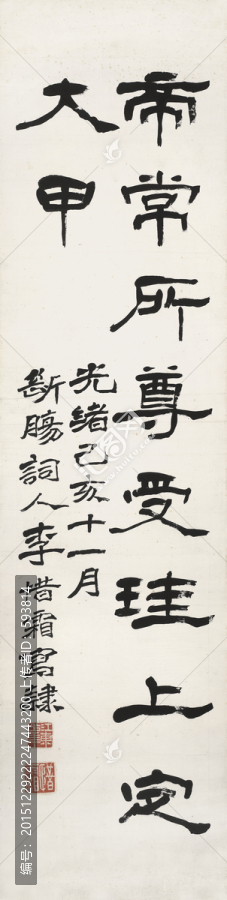 帝常所尊受珪上定
大甲
光緒己亥十一月
斷腸詞人李惜霜冩隸
编号：20151229222247443200 上传者ID：593814